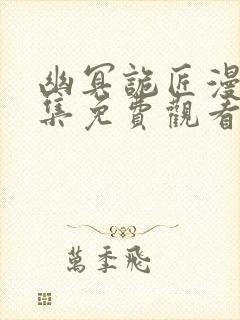 幽冥詭匠漫
集免費觀看
萬季飛